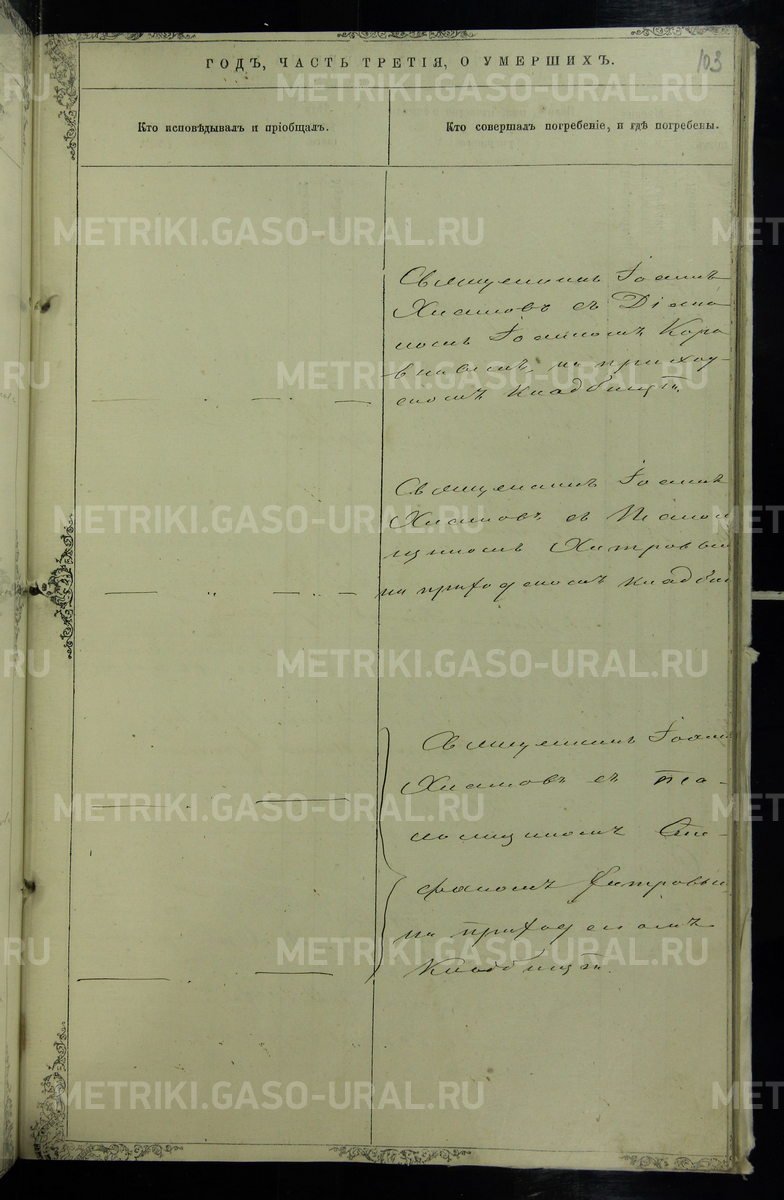 103
ГОДЪ, ЧАСТЬ ТРЕТІЯ, О УМЕРШИХЪ.
Кто исповѣдывалъ и пріобщалъ.
Кто совершалъ погребеніе, и гдѣ погребены.
Священникъ Іоаннъ
съ Діако
номъ Іоанномъ
на приход-
скомъ кладбищѣ.
Священникъ Іоаннъ
съ Псалом
щикомъ
на приходскомъ кладби
Священникъ Іоан
съ Пса-
ломщикомъ Сте-
фаномъ
на приходскомъ
Кладбищѣ.
METRIKI.GASO-URAL.RU